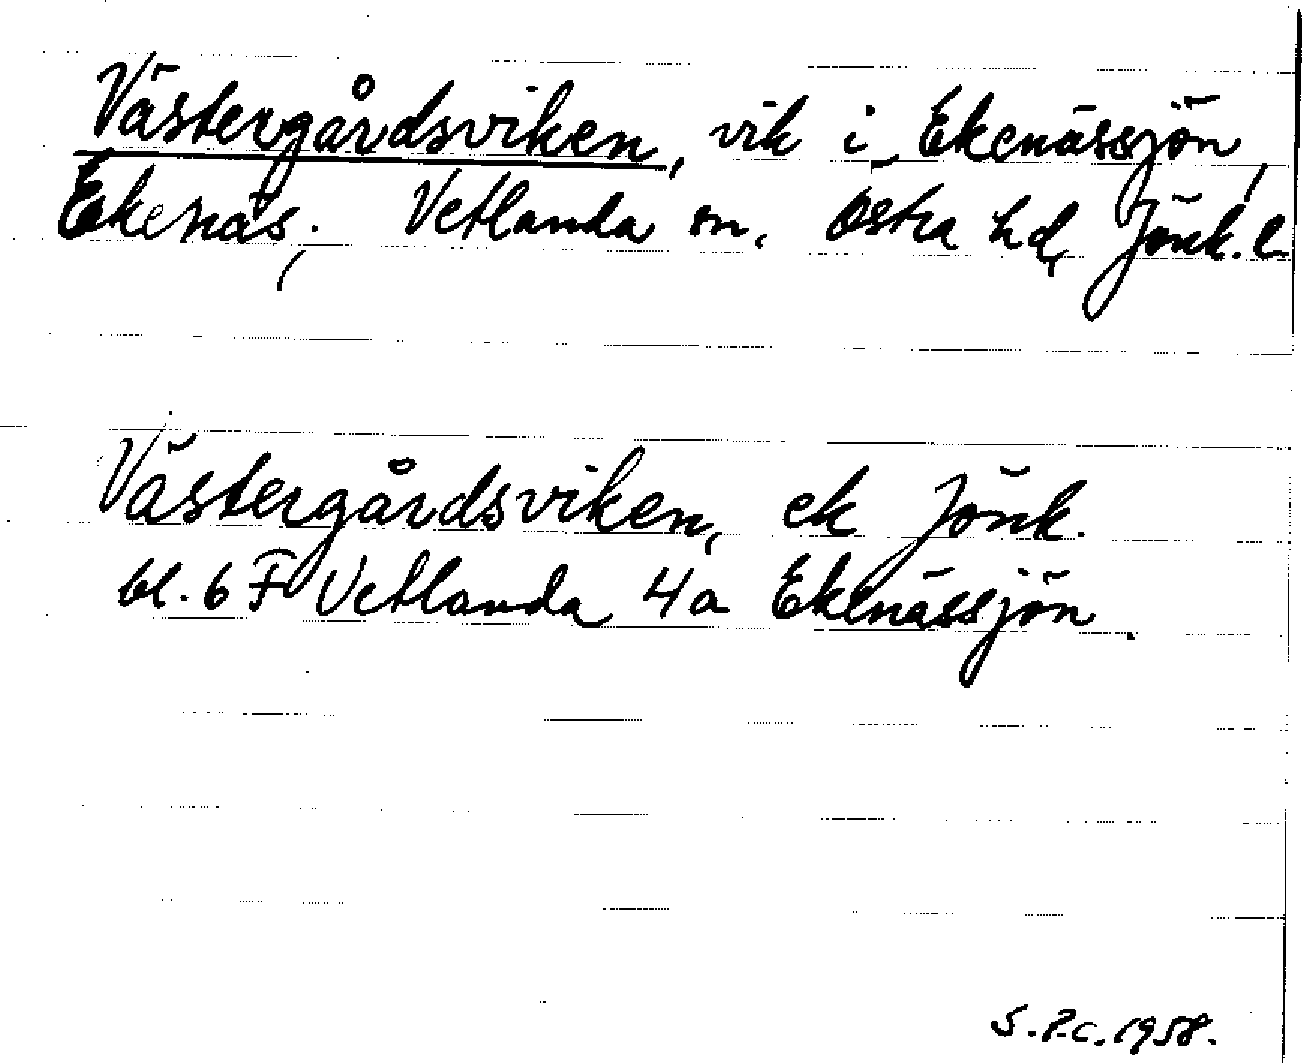 Västergårdsviken, vik i Ekenässjön,
Ekenäs, Vetlanda sn, Östra hd, Jönk. l.
Västergårdsviken, ek Jönk.
bl. 6 F Vetlanda 4a Ekenässjön.
S.P.C. 1958.